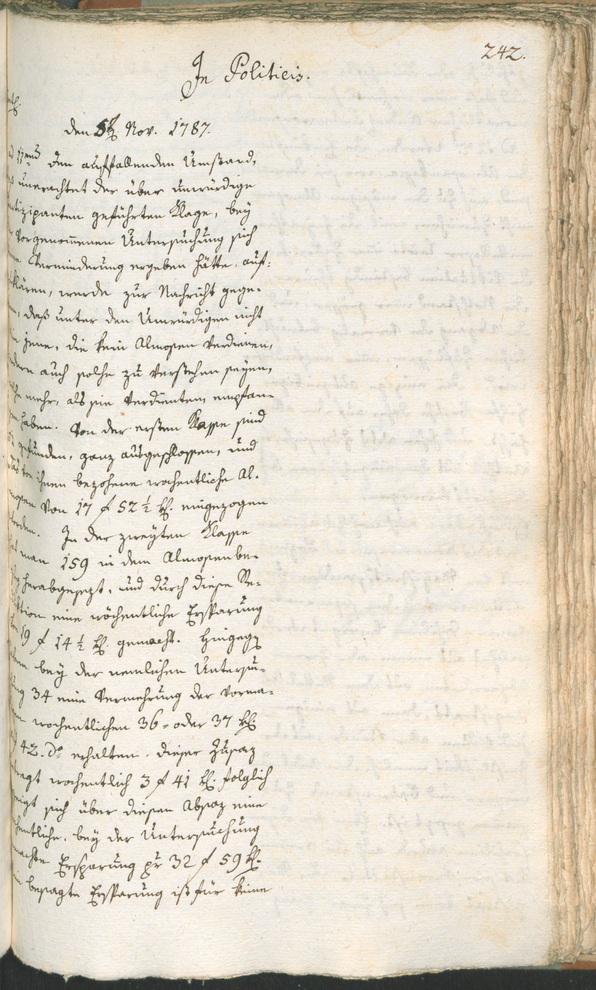 242.
In Politicis.
den 5t Nov. 1787.
den auffallenden Umstand,
unerachtet der über unwürdige
partizipanten geführten Klage, bey
vorgenommenen Untersuchung sich
Verminderung ergeben hätte, auf-
klären, wurde zur Nachricht gege-
daß unter den Unwürdigen nicht
jene, die kein Almosen verdienen,
auch solche zu verstehen seyen,
mehr, als sie verdienten, empfan-
haben. Von der ersten Klasse sind
gefunden, ganz ausgeschlossen, und
ihnen bezohene wochentliche Al-
mosen von 17 f 52½ kr. eingezogen
worden. In der zweyten Klasse
man 159 in dem Almosen be-
herabgesezt, und durch diese Re-
duktion eine wöchentliche Ersparung
19 f 14½ kr. gemacht. Hingegen
bey der nemlichen Untersu-
chung 34 eine Vermehrung der vorma-
wochentlichen 36 oder 37 kr
42. do erhalten. Dieser Zusaz
wochentlich 3 f 41 kr. folglich
zeigt sich über diesen Absaz eine
wochentliche, bey der Untersuchung
gemachte Ersparung pr 32 f 59 kr.
besagte Ersparung ist für keine